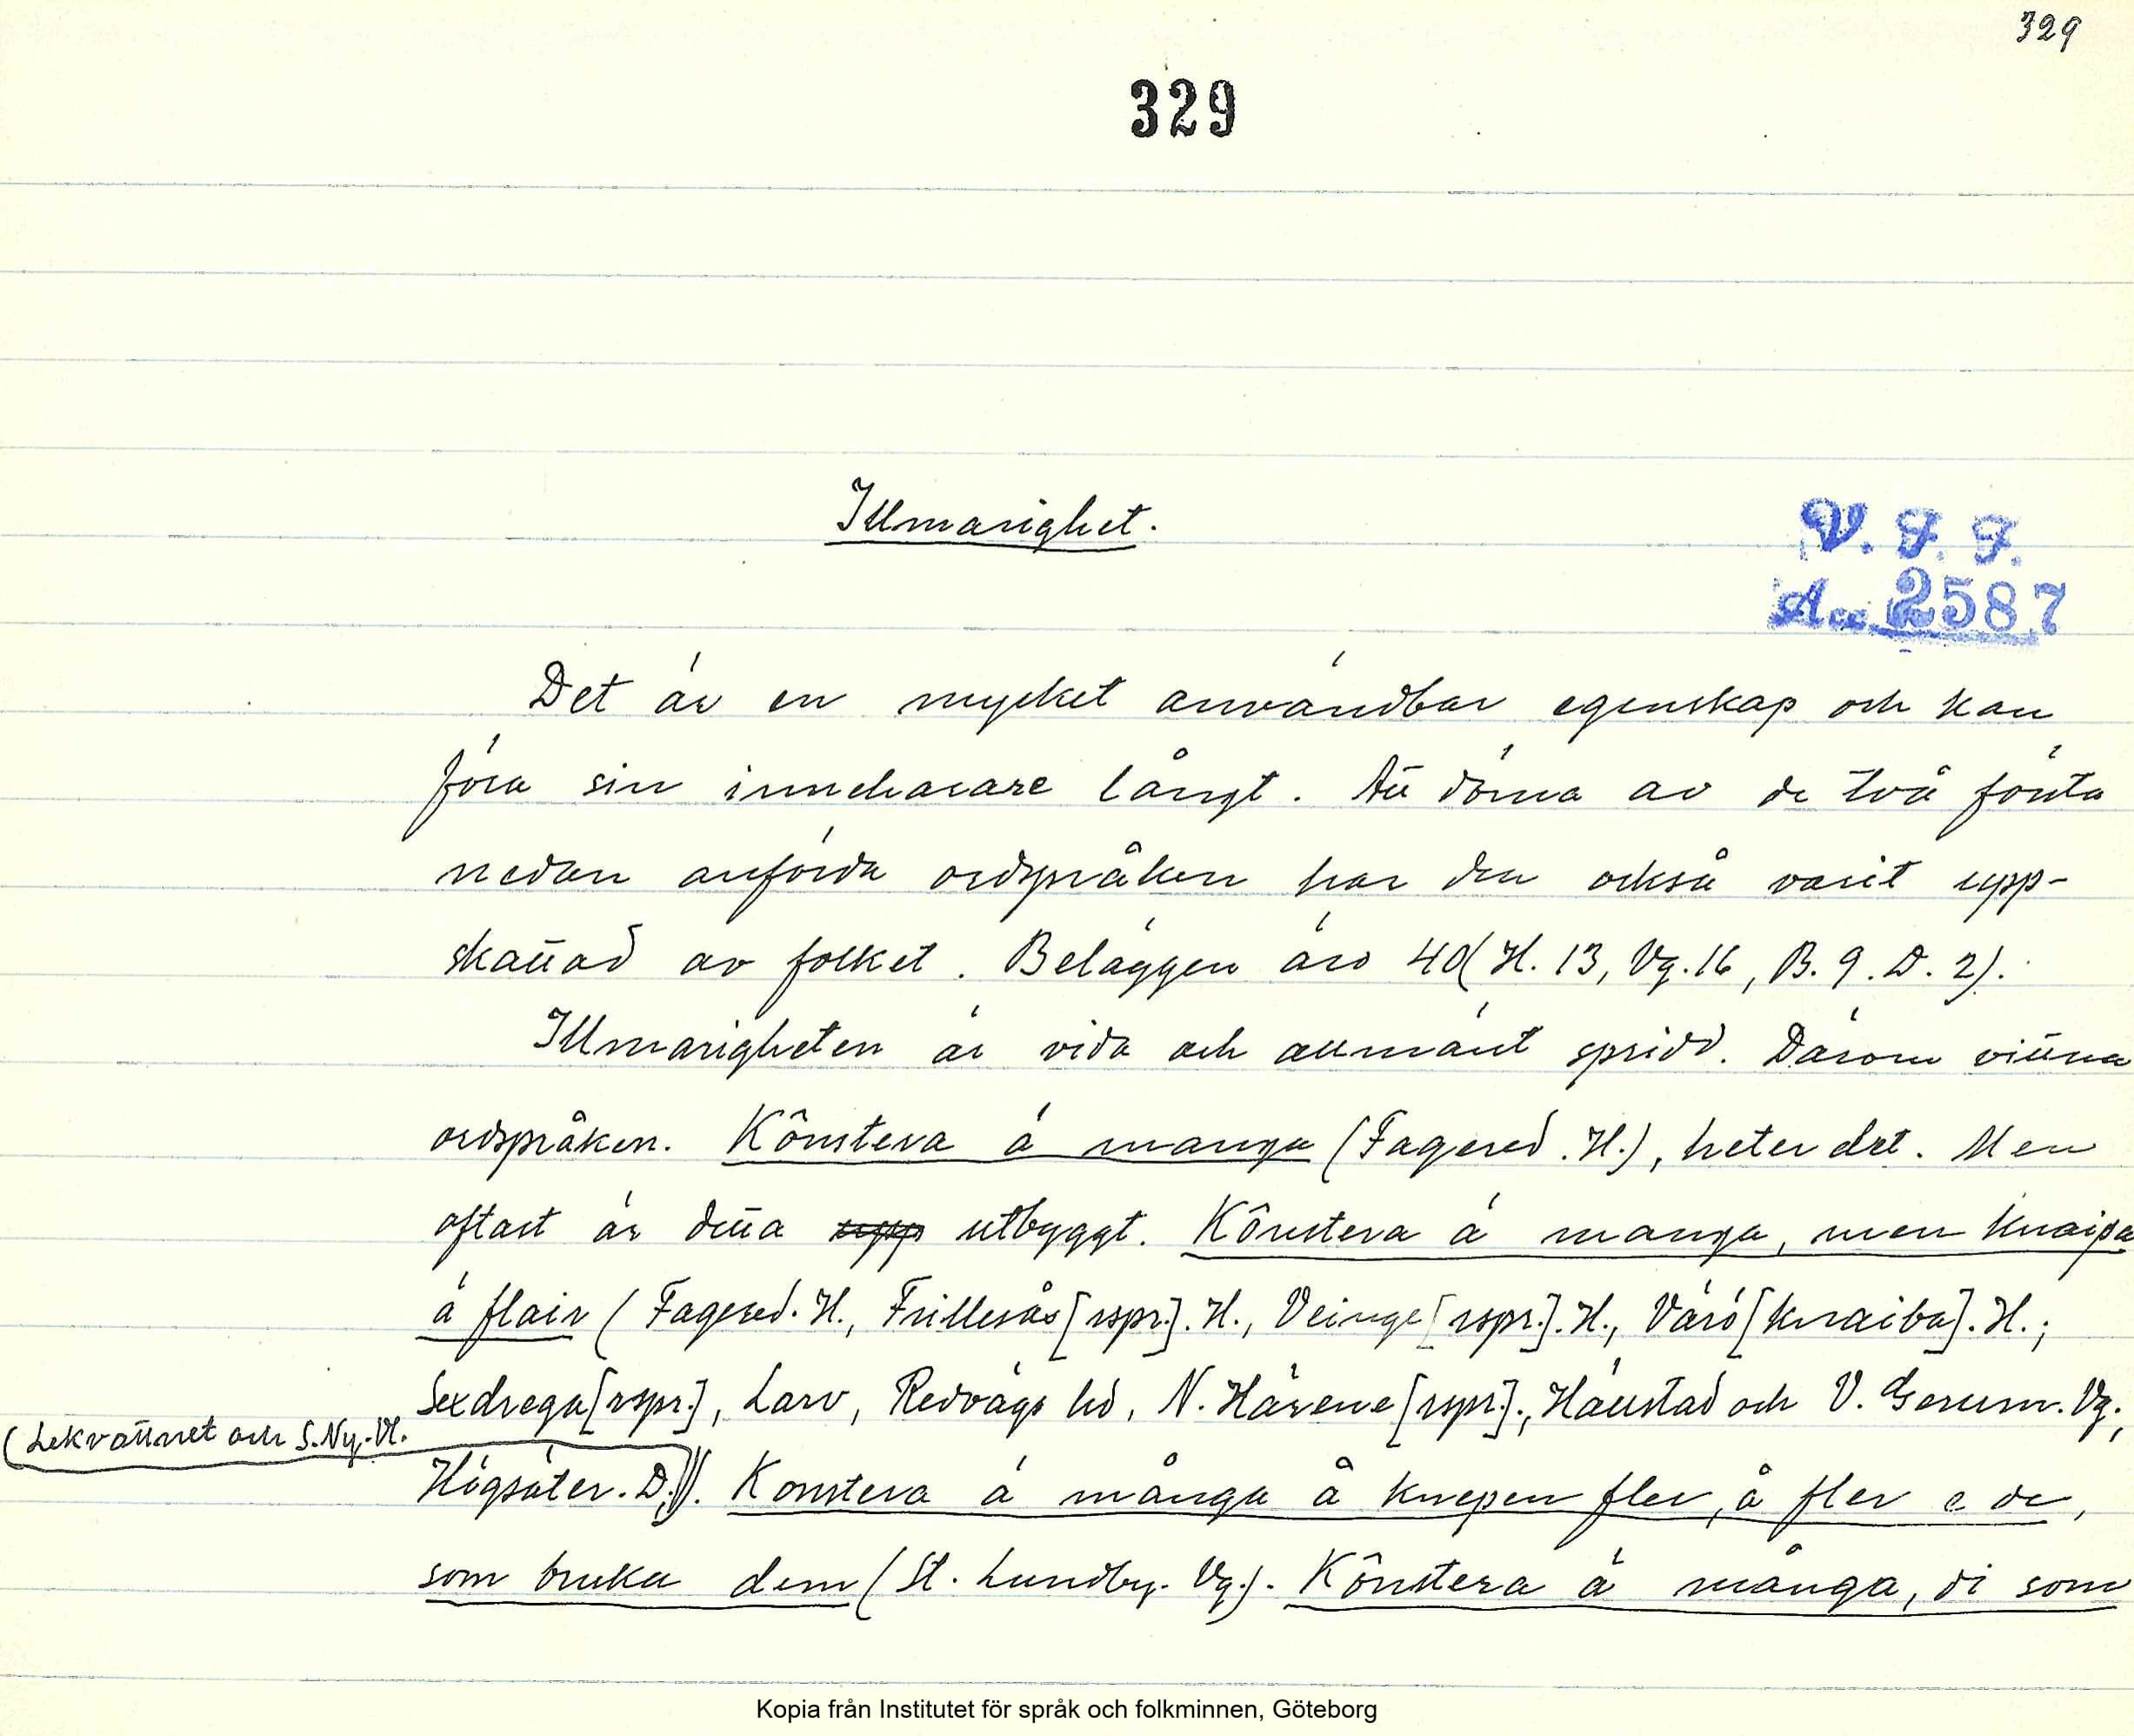 329
329
Illmarighet.
V. F. F.
Acc. 2587
Det är en mycket användbar egenskap och kan
föra sin innehavare långt. Att döma av de två första
nedan anförda ordspråken har den också varit upp-
skattad av folket. Beläggen äro 40 (H. 13, Vg. 16, B. 9. D. 2).
Illmarigheten är vida och allmänt spridd. Därom vittna
ordspråken. Kônstera ä manga (Fagered. H.), heter det. Men
oftast är detta upp utbyggt. Kônstera ä manga, men knaipa
ä flair (Fagered. H., Frillesås [rspr.]. H., Veinge [rspr.]. H., Värö [knaiba]. H.;
Sexdrega [rspr.], Larv, Redvägs hd, N. Härene [rspr.], Hällstad och V. Gerum. Vg.;
(Lekvattnet och S. Ny. Vl.
Högsäter. D.)). Konstera ä många å knepen fler, å fler e de,
som bruka dem (St. Lundby. Vg.). Kônstera ä många, di som
Kopia från Institutet för språk och folkminnen, Göteborg